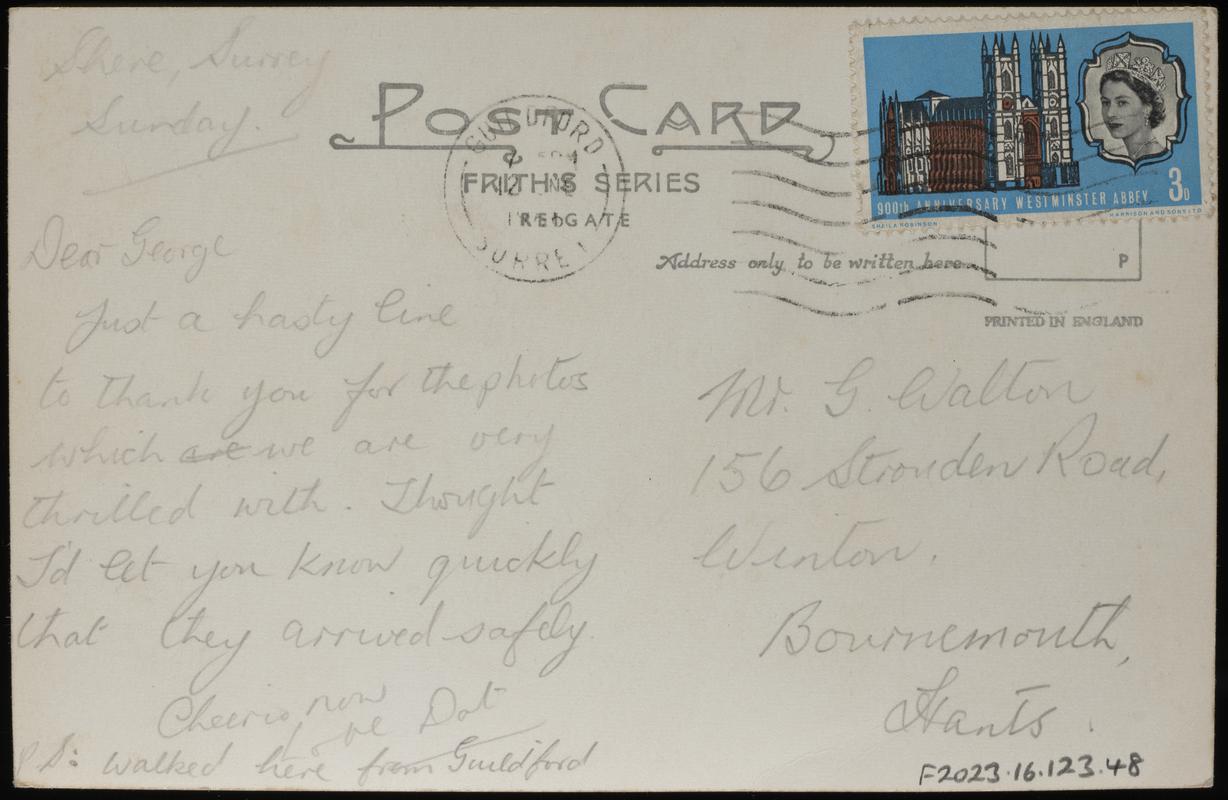 Shere, Surrey
Sunday.
POST CARD
FRITH'S SERIES
REIGATE
GUILDFORD
SURREY
900th ANNIVERSARY WESTMINSTER ABBEY
3D
SHEILA ROBINSON
HARRISON AND SONS LTD
Address only to be written here
P
PRINTED IN ENGLAND
Dear George
Just a hasty line
to thank you for the photos
which are we are very
thrilled with. Thought
I'd let you know quickly
that they arrived safely.
Cheerio now
love Dot
P.S: walked here from Guildford
Mr. G. Walton
156 Strouden Road,
Winton.
Bournemouth,
Hants.
F2023.16.123.48